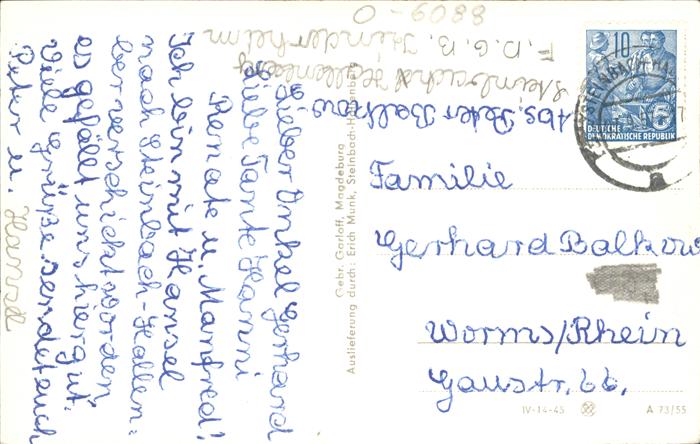 Lieber Onkel Gerhard
Liebe Tante Hanni
Renate u. Manfred!
Ich bin mit Hansel
nach Steinbach-Hallen=
berg verschickt worden
es gefällt uns hier gut.
Viele Grüße sendet euch
Peter u. Hansel
Abs. Peter Balkow
Steinbach Hallenberg
F.D.G.B. Kinderheim
8809-0
Gebr. Garloff, Magdeburg
Auslieferung durch: Erich Munk, Steinbach-Hallenberg
10
DEUTSCHE
DEMOKRATISCHE REPUBLIK
STEINBACH-HA
Familie
Gerhard Balkow
Worms/Rhein
Gaustr. 66.
IV-14-45
A 73/55